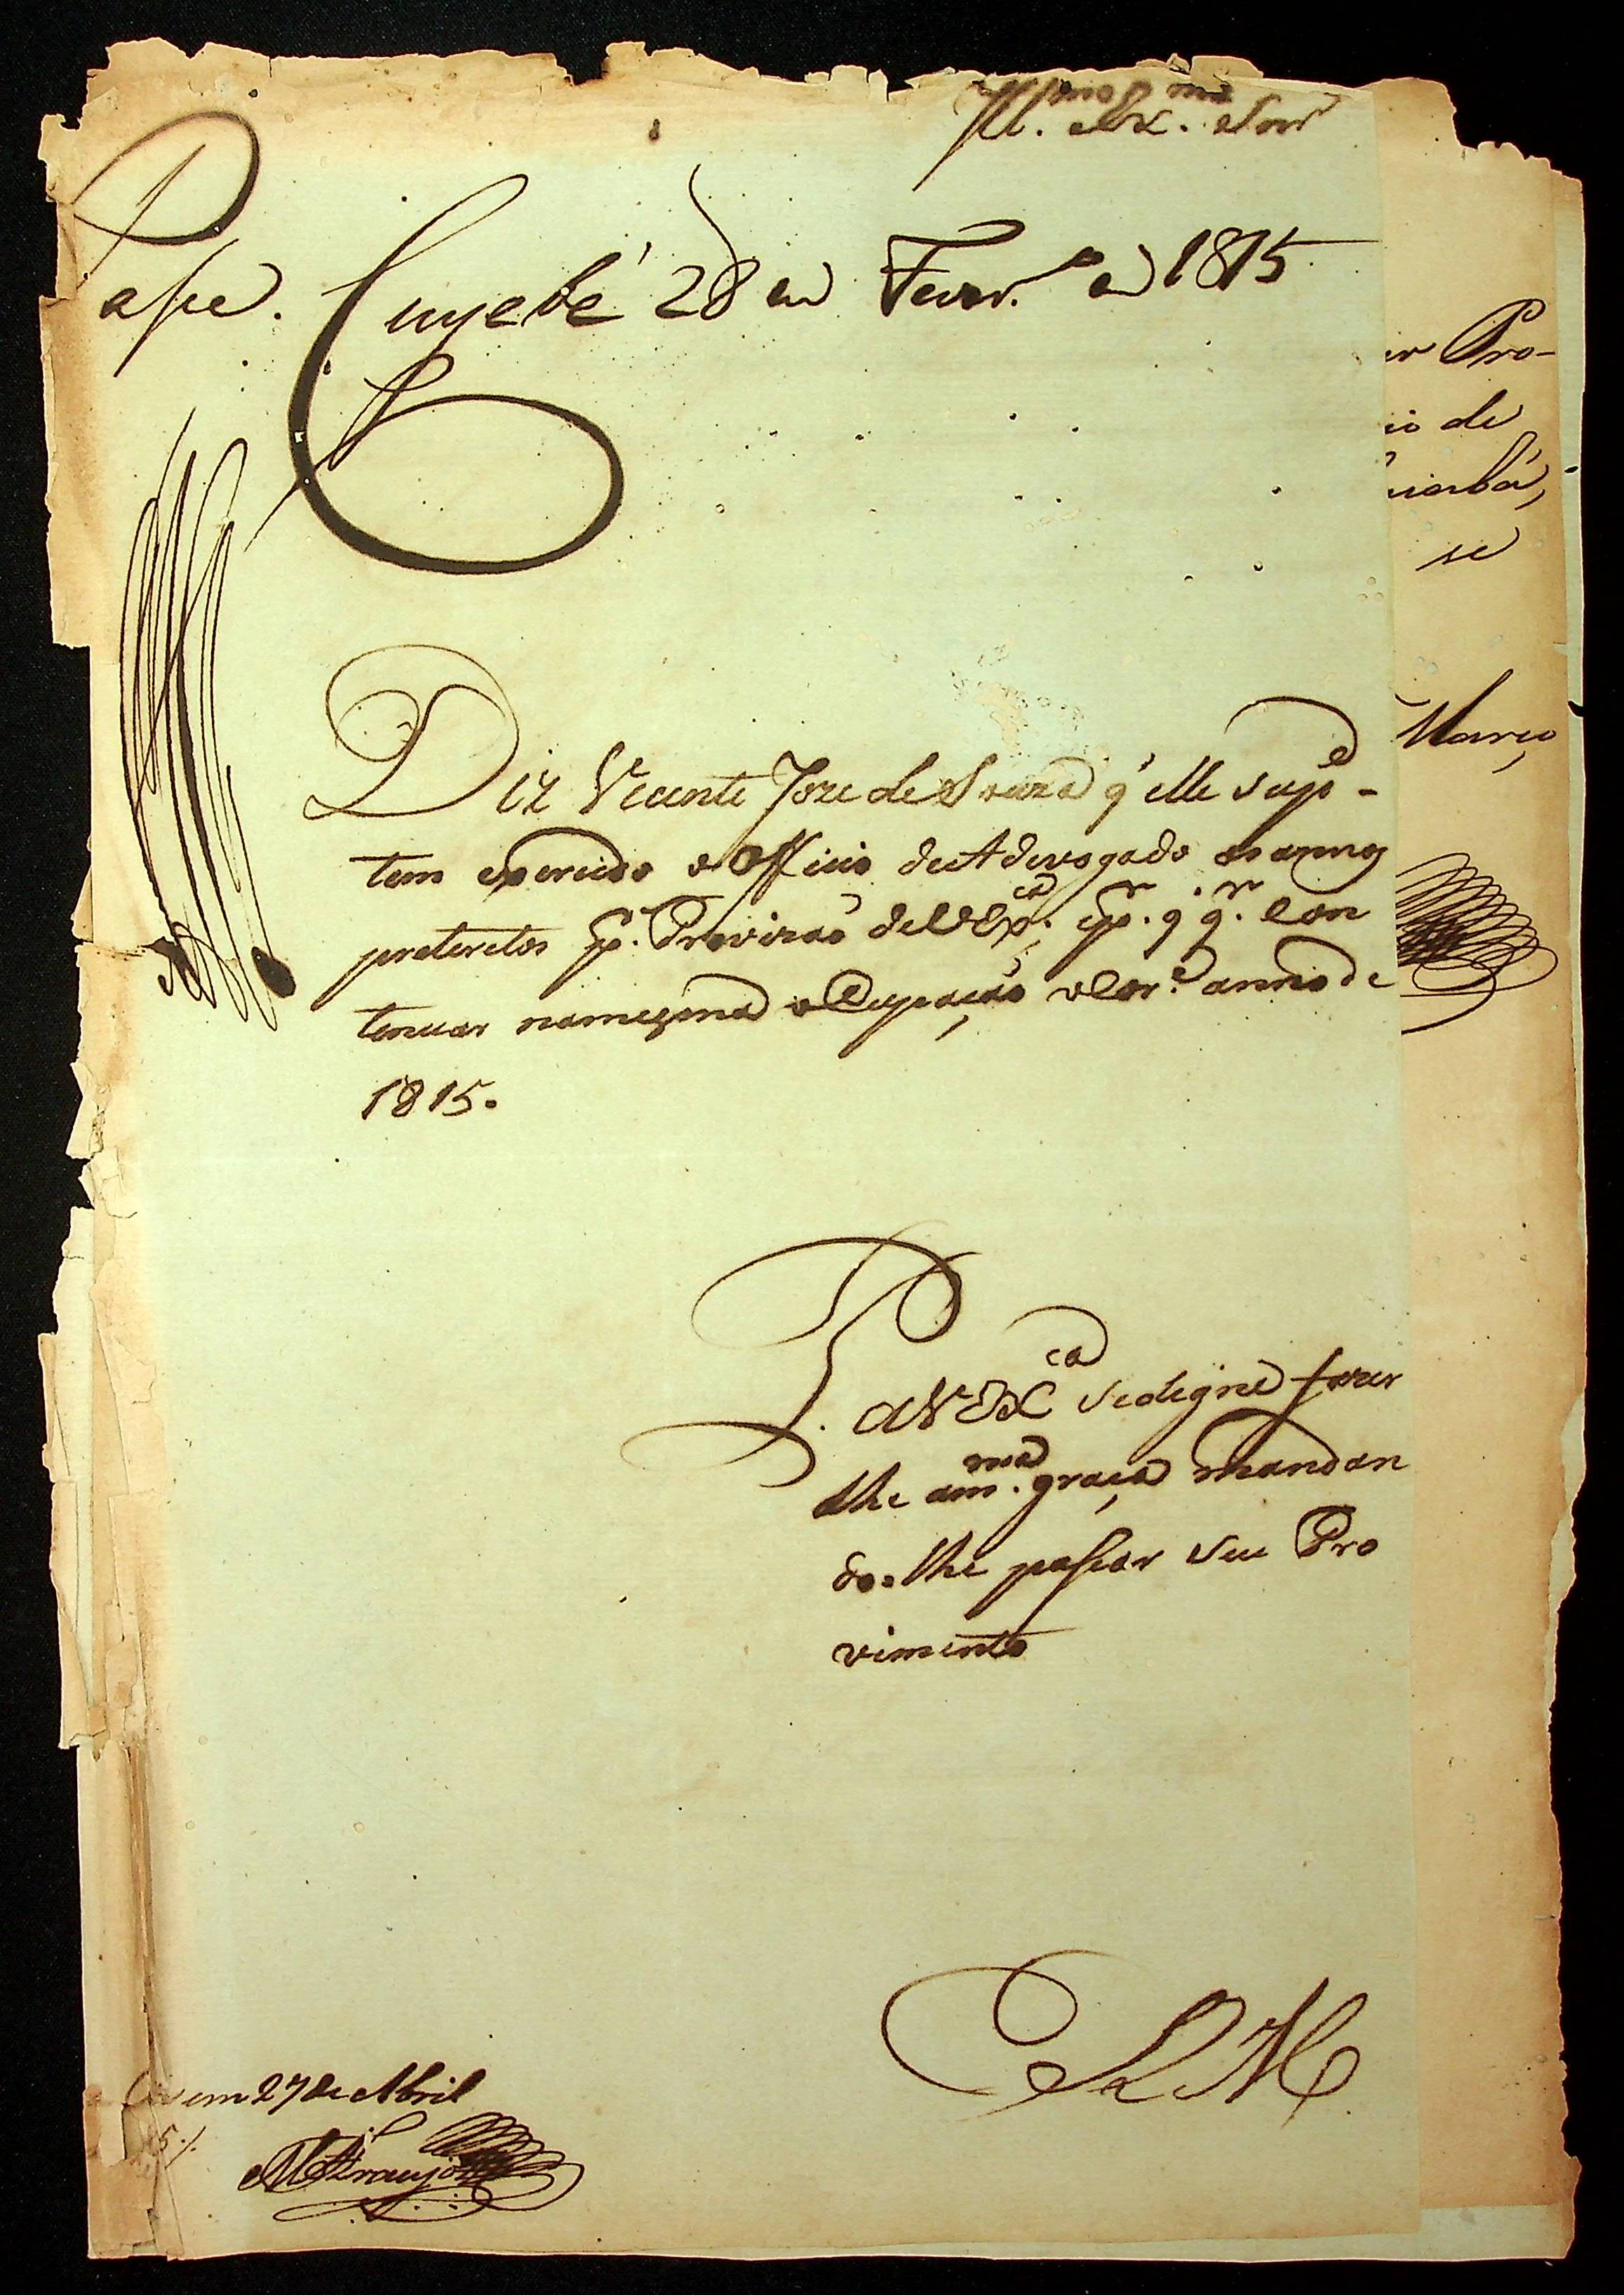 Ill.mo Ex.mo Snr
Passe. Cuyabá 28 de Fever.o de 1815
Diz Vicente Joze de Souza q' elle sup.e -
tem exercido o Officio de Advogado os annos
preteretos p.r Provizaõ de V Ex.ca; e p.r q' q.r Con
tenuar na mesma occupaçaõ o Cor.e anno de
1815.
P. a V EX.ca se digne fazer
lhe a m.ma graça mandan
do-lhe passar seu Pro
vimento
E R M
em 27 de Abril
M Araujo
Pro-
de
se
Março